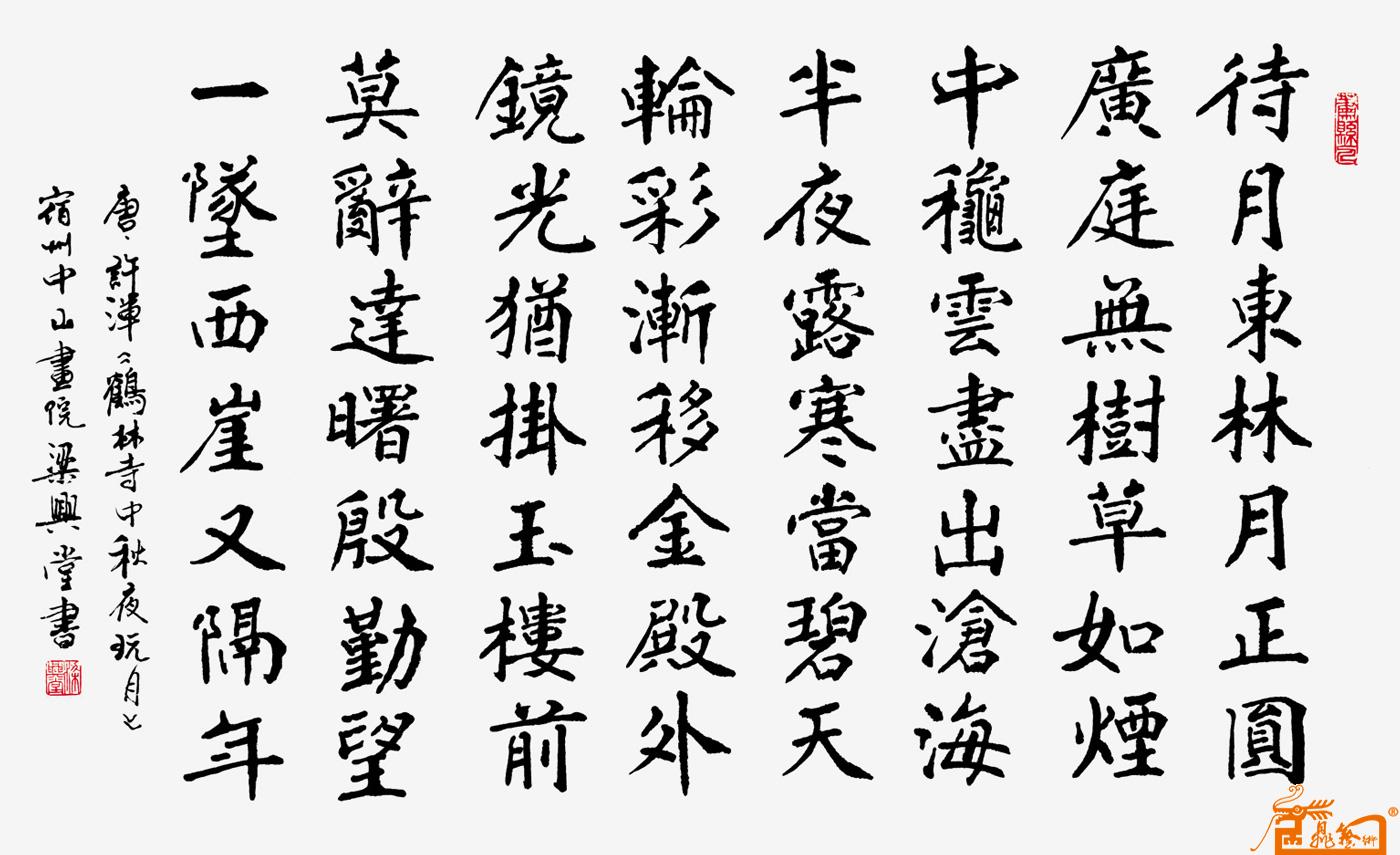 待月東林月正圓
廣庭無樹草如煙
中龝雲盡出滄海
半夜露寒當碧天
輪彩漸移金殿外
鏡光猶掛玉樓前
莫辭達曙殷勤望
一墜西崖又隔年
唐、許渾《鶴林寺中秋夜玩月》
宿州中山畫院梁興堂書